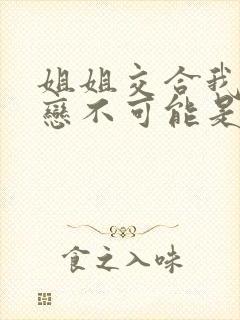 姐姐交合我
戀不可能是
食之入味